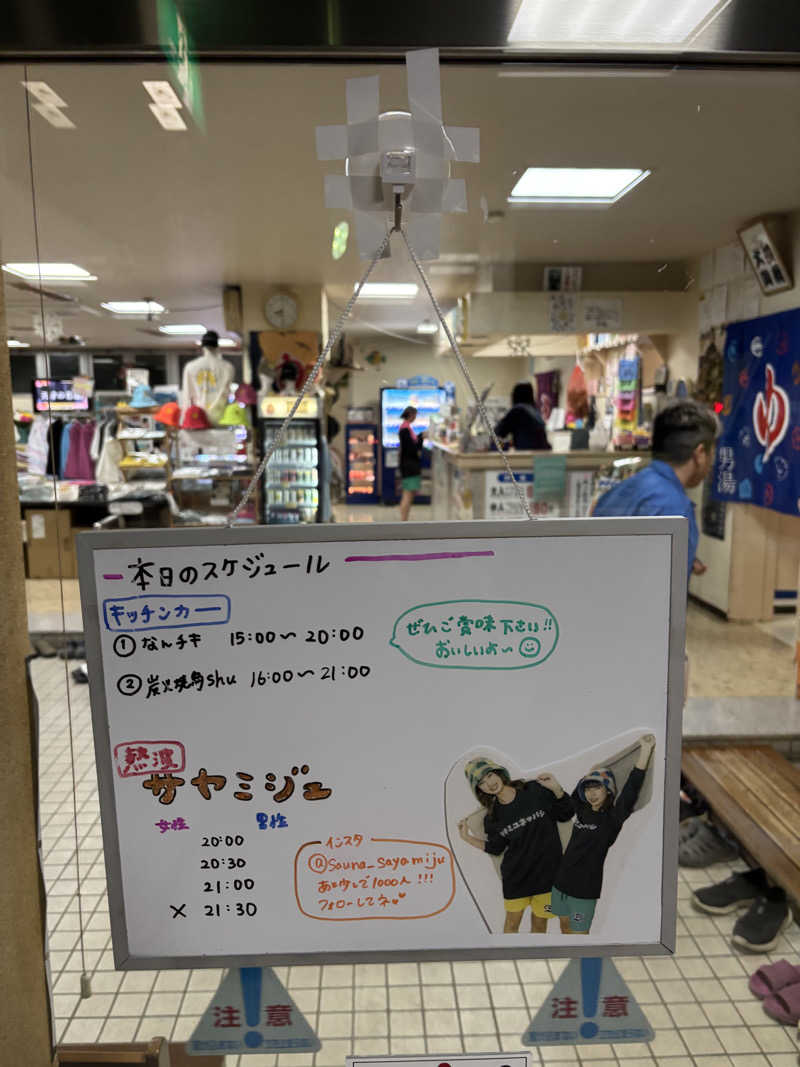 本日のスケジュール
キッチンカー
① なんチキ 15:00〜20:00
② 炭火焼鳥shu 16:00〜21:00
ぜひご賞味下さい!!
おいしいよ〜
熱波
サヤミジュ
女性 男性
20:00
20:30
21:00
× 21:30
インスタ
@sauna_sayamiju
あと少しで1000人!!!
フォローしてネ♥
ゆ
男湯
注意
注意